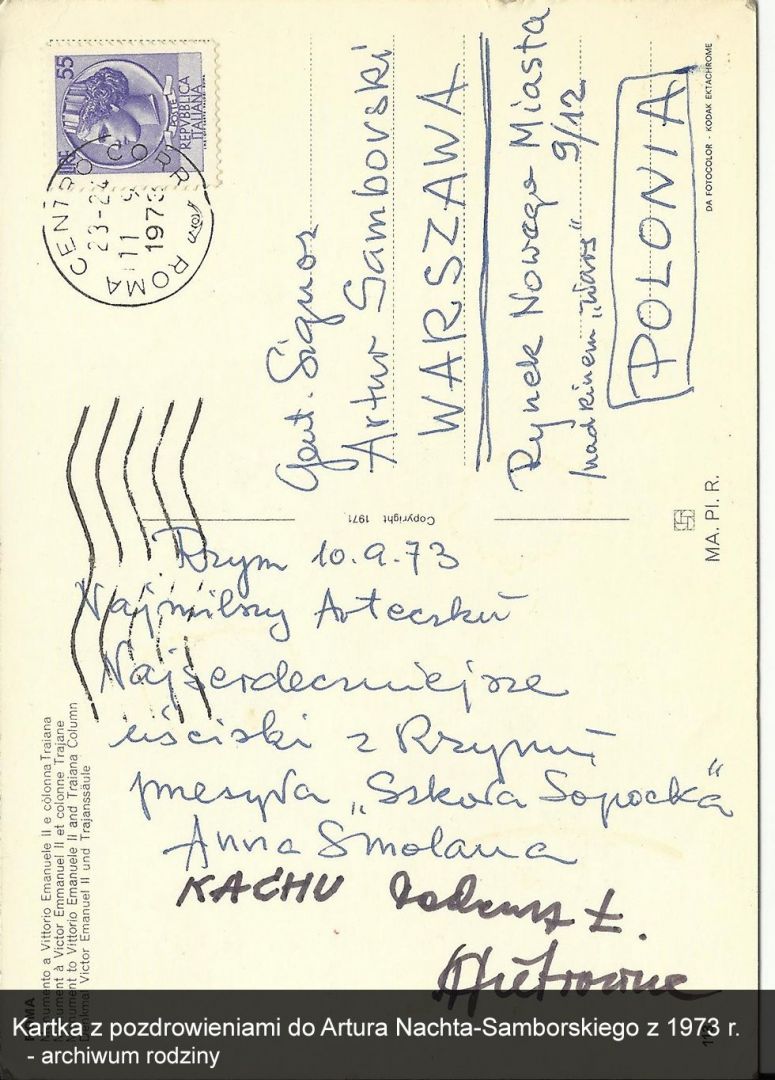 55
LIRE
POSTE
REPVBBLICA
ITALIANA
ROMA CENTRO CORR.
23-24
11 9
1973
Gent. Signor
Artur Samborski
WARSZAWA
Rynek Nowego Miasta
9/12
nad kinem „Wars"
POLONIA
DA FOTOCOLOR - KODAK EKTACHROME
MA. PI. R.
Copyright 1971
Rzym 10.9.73
Najmilszy Arteczku
Najserdeczniejsze
uściski z Rzymu
przesyła „Szkoła Sopocka"
Anna Smolana
KACHU Tadeusz Ł.
ROMA
Monumento a Vittorio Emanuele II e colonna Traiana
Monument à Victor Emmanuel II et colonne Trajane
Monument to Vittorio Emanuele II and Traiana Column
Denkmal Victor Emanuel II und Trajanssäule
Kartka z pozdrowieniami do Artura Nachta-Samborskiego z 1973 r.
- archiwum rodziny